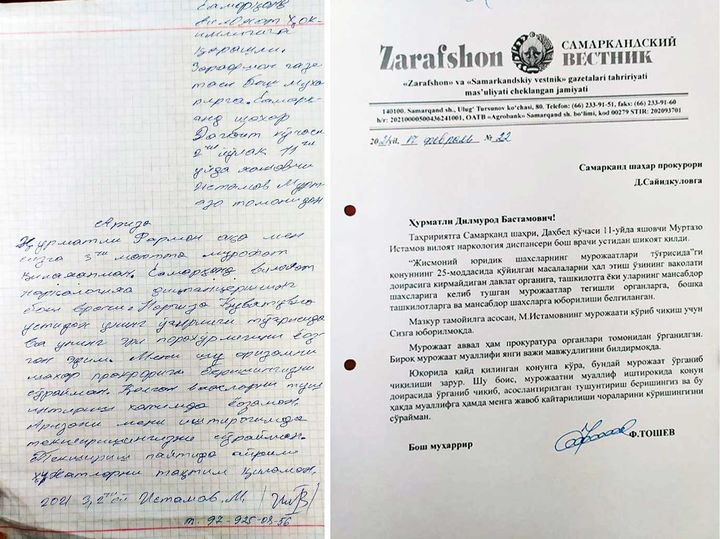 Самарқанд
вилоят ҳок-
имлигига
қарашли.
Зарафшон газе
таси бош муҳа
ррирга. Самарқ-
анд шаҳар
Даҳбет кўчаси
11
уйда яшовчи
Истамов Мурт-
азо томонидан
Ариза
Ҳурматли Фармон ака мен
сизга 3 чи мартта мурожат
қилаяапман. Самарқанд вилоят
наркология диспансерининг
бош врачи
устидан унинг
ва унинг
ган эдим. Мени шу аризамни
шаҳар прокрорига беришингизни
сўрайман.
хатимда ёзаман.
Аризани мени иштирокимда
текширишингизни сўрайман.
Текшириш пайтида айрим
ҳужжатларни тақдим қиламан.
2021 3, 2 Истамов. М.
т. 97-925-08-56
Zarafshon САМАРКАНДСКИЙ
ВЕСТНИК
«Zarafshon» va «Samarkandskiy vestnik» gazetalari tahririyati
mas'uliyati cheklangan jamiyati
140100. Samarqand sh., Ulug' Tursunov ko'chasi, 80. Telefon: (66) 233-91-51, faks: (66) 233-91-60
h/r: 20210000500436241001, OATB «Agrobank» Samarqand sh. bo'limi, kod 00279 STIR: 202093701
2021 yil, 17 февраль № 22
Самарканд шаҳар прокурори
Д.Сайидкуловга
Ҳурматли Дилмурод Бастамович!
Таҳририятга Самарканд шаҳри, Даҳбед кўчаси 11-уйда яшовчи Муртазо
Истамов вилоят наркология диспансери бош врачи устидан шикоят қилди.
"Жисмоний юридик шахсларнинг мурожаатлари тўғрисида"ги
қонуннинг 25-моддасида қўйилган масалаларни ҳал этиш ўзининг ваколати
доирасига кирмайдиган давлат органига, ташкилотга ёки уларнинг мансабдор
шахсларига келиб тушган мурожаатлар тегишли органларга, бошқа
ташкилотларга ва мансабдор шахсларга юборилиши белгиланган.
Мазкур тамойилга асосан, М.Истамовнинг мурожаати кўриб чиқиш учун
Сизга юборилмоқда.
Мурожаат аввал ҳам прокуратура органлари томонидан ўрганилган.
Бироқ мурожаат муаллифи янги важи мавжудлигини билдирмоқда.
Юқорида қайд қилинган қонунга кўра, бундай мурожаат ўрганиб
чиқилиши зарур. Шу боис, мурожаатни муаллиф иштирокида қонун
доирасида ўрганиб чиқиб, асослантирилган тушунтириш беришингиз ва бу
ҳақда муаллифга ҳамда менга жавоб қайтарилиши чораларини кўришингизни
сўрайман.
Бош муҳаррир Ф.ТОШЕВ